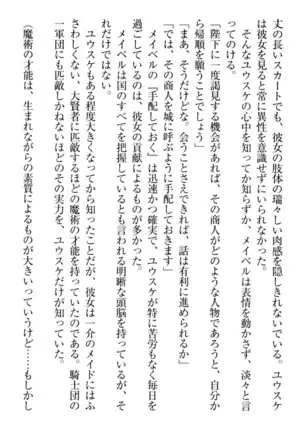 丈の長いスカートでも、彼女の肢体の瑞々しい肉感を隠しきれないでいる。ユウスケ
は彼女を見ると常に異性を意識せずにいられなかった。
そんなユウスケの心中を知ってか知らずか、メイベルは表情を動かさず、淡々と言
ってのける。
「陛下に一度謁見する機会があれば、その商人がどのような人物であろうと、自分か
ら帰順を願うことでしょう」
「まあ、そうだけどな。会うことさえできれば、話は有利に進められるか」
「では、その商人を城に呼ぶように手配しておきます」
メイベルの「手配しておく」は迅速かつ確実で、ユウスケが特に苦労もなく毎日を
過ごしているのは、彼女の貢献によるものが多かった。
メイベルは国のすべてを把握しているとも言われる明晰な頭脳を持っているが、そ
れだけではない。
ユウスケもある程度大きくなってから知ったことだが、彼女は一介のメイドにはふ
さわしくない、大賢者に匹敵するほどの魔術の才能を持っていたのである。騎士団の
一軍団にも匹敵しかねないほどのその実力を、ユウスケだけが知っていた。
（魔術の才能は、生まれながらの素質によるものが大きいっていうけど……もしかし